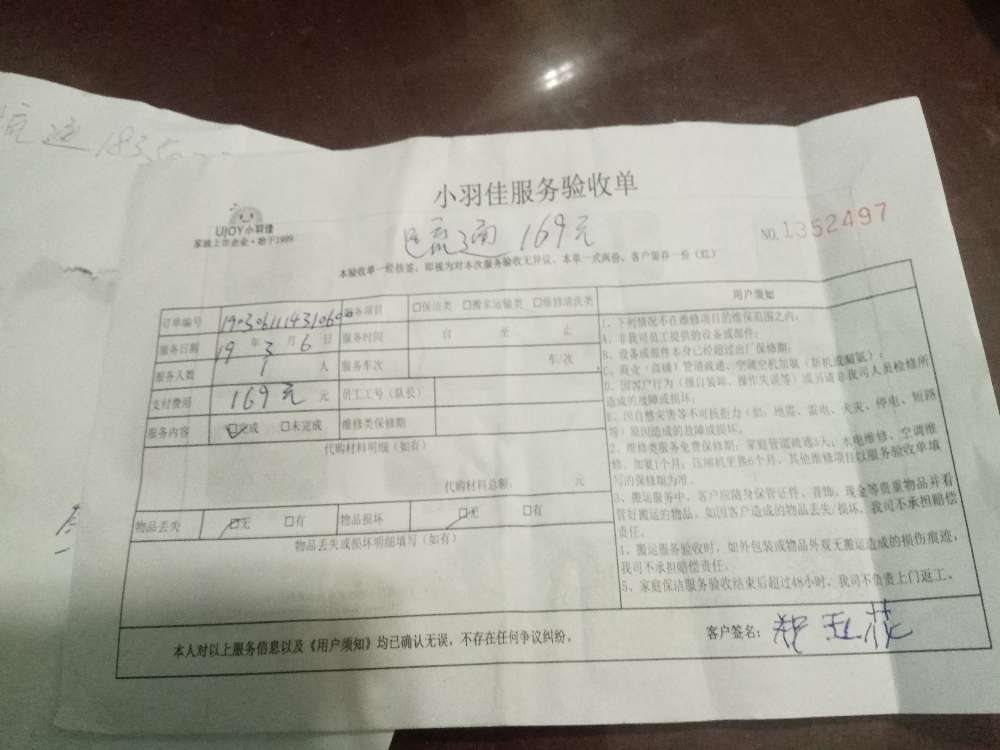 小羽佳服务验收单
UJOY小羽佳
家族上市企业·始于1999
疏通 169元
NO.1352497
本验收单一经核签，即视为对本次服务验收无异议，本单一式两份，客户留存一份（红）
订单编号
服务项目 □保洁类 □搬家运输类 □维修清洗类
服务日期 19年3月6日 服务时间 自 至 止
服务人数 1人 服务车次 车/次
支付费用 169元 元 员工工号（队长）
服务内容 □完成 □未完成 维修类保修期
代购材料明细（如有）
代购材料总额： 元
物品丢失 □无 □有 物品损坏 □无 □有
物品丢失或损坏明细填写（如有）
用户须知
1、下列情况不在维修项目的维保范围之内：
A、非我司员工提供的设备或部件；
B、设备或部件本身已经超过出厂保修期；
C、商业（商铺）管道疏通、空调空机加氨（新机或漏氨）；
D、因客户行为（擅自装卸、操作失误等）或另请非我司人员检修所
造成的故障或损坏；
E、因自然灾害等不可抗拒力（如：地震、雷电、火灾、停电、短路
等）原因造成的故障或损坏。
2、维修类服务免费保修期：家庭管道疏通3天，水电维修、空调维
修、加氨1个月；压缩机更换6个月，其他维修项目以服务验收单填
写的保修期为准。
3、搬运服务中，客户应随身保管证件、首饰、现金等贵重物品并看
管好搬运的物品，如因客户造成的物品丢失/损坏，我司不承担赔偿
责任。
4、搬运服务验收时，如外包装或物品外观无搬运造成的损伤痕迹，
我司不承担赔偿责任。
5、家庭保洁服务验收结束后超过48小时，我司不负责上门返工。
本人对以上服务信息以及《用户须知》均已确认无误，不存在任何争议纠纷。
客户签名：